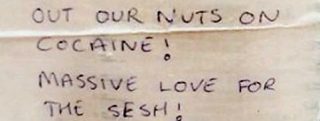 OUT OUR NUTS ON
COCAINE!
MASSIVE LOVE FOR
THE SESH!